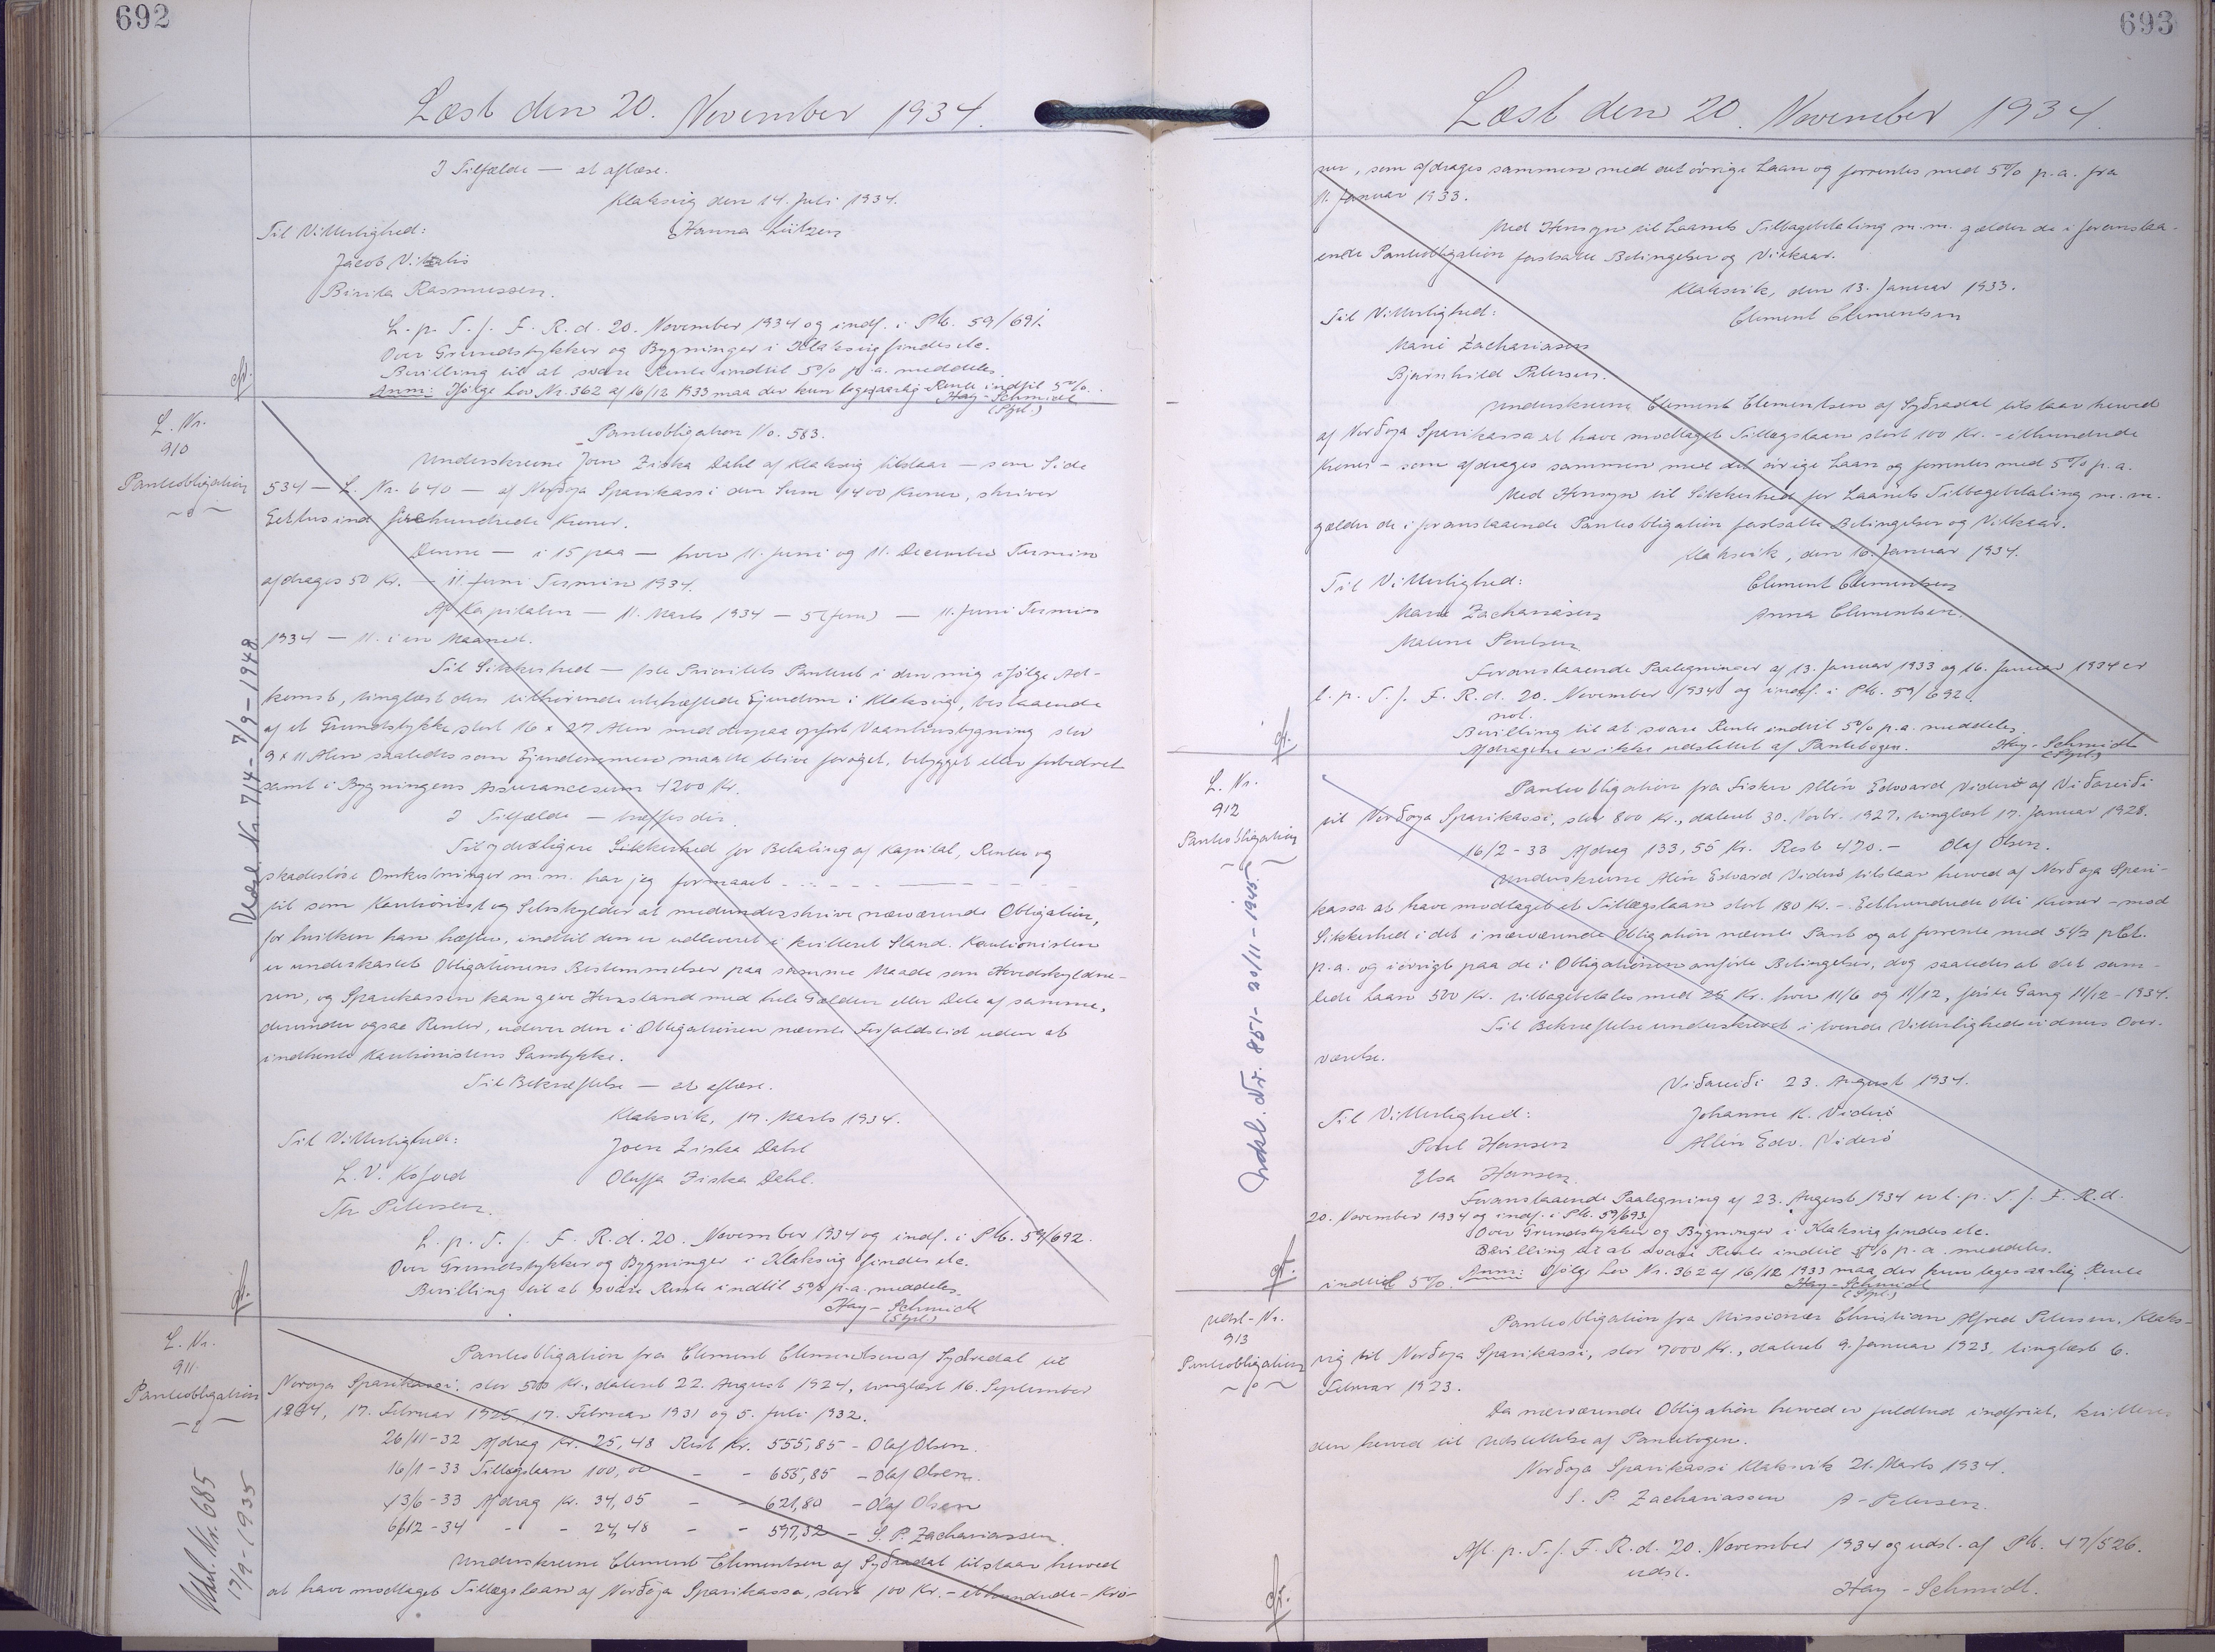 692
Læst den 20. November 1934.
I Tilfælde — at aflæse.
Klaksvig den 14. Juli 1934.
Til Vitterlighed: Hanna Lützen
Jacob Vitalis
Birita Rasmussen.
L. p. T. f. F. R. d. 20. November 1934 og indf. i Ptb. 59/691.
Over Grundstykker og Bygninger i Klaksvig findes etc.
Bevilling til at svare Rente indtil 5% p.a. meddeles.
Anm: Ifølge Lov Nr. 362 af 16/12 1933 maa der kun tages aarlig Rente indtil 5%.
Hay-Schmidt
L. Nr.
910
Panteobligation
Panteobligation No. 583.
Underskrevne Joen Ziska Dahl af Klaksvig tilstaar — som Side
534 — L. Nr. 640 — af Norðoya Sparikassi den Sum 1400 Kroner, skriver
Eettusind firehundrede Kroner.
Denne — i 15 paa — hver 11. Juni og 11. December Termin
afdrages 50 Kr. — 11. Juni Termin 1934.
Af Kapitalen — 11. Marts 1934 — 5 (fem) — 11. Juni Termin
1934 — 11. i en Maaned.
Til Sikkerhed — Prioritets Panteret i den mig ifølge Ad-
komst, tinglæst den tilhørende ubehæftede Ejendom i Klaksvig, bestaaende
af et Grundstykke stort 16 x 27 Alen med derpaa opført Vaaanhusbygning stor
9 x 11 Alen saaledes som Ejendommen maatte blive forøget, bebygget eller forbedret
samt i Bygningens Assurancesum 4200 Kr.
I Tilfælde — træffes dir.
Til yderligere Sikkerhed for Betaling af Kapital, Renter og
skadesløse Omkostninger m.m. har jeg formaaet
til som Kautionist og Selvskylder at medunderskrive nærværende Obligation,
for hvilken han hæfter, indtil den er udleveret i kvitteret Stand. Kautionisten
er underkastet Obligationens Bestemmelser paa samme Maade som Hovedskyldne-
ren, og Sparekassen kan give Henstand med hele Gælden eller Dele af samme,
derunder ogsaa Renter, udover den i Obligationen nævnte Forfaldstid uden at
indhente Kautionistens Samtykke.
Til Bekræftelse — at aflæse.
Klaksvik, 17. Marts 1934.
Til Vitterlighed: Joen Ziska Dahl
L. V. Kofoed Oluffa Ziska Dahl.
Th Petersen.
L. p. T. f. F. R. d. 20. November 1934 og indf. i Ptb. 59/692.
Over Grundstykker og Bygninger i Klaksvig findes etc.
Bevilling til at svare Rente indtil 5% p.a. meddeles.
Hay-Schmidt
Udsl. Nr. 714 - 7/9 - 1948
L. Nr.
911.
Panteobligation
Panteobligation fra Clement Clementsen af Syðradal til
Norðoya Sparikassi, stor 500 Kr., dateret 22. August 1924, tinglæst 16. September
1924, 17. Februar 1925, 17. Februar 1931 og 5. Juli 1932.
26/11-32 Afdrag Kr. 25,48 Rest Kr. 555,85 - Olaf Olsen.
16/1-33 Tillægslaan 100,00 - - 655,85 - Olaf Olsen.
13/6-33 Afdrag Kr. 34,05 - - 621,80 - Olaf Olsen
6/12-34 - - 24,48 - - 597,32 - S. P. Zachariassen.
Underskrevne Clement Clementsen af Syðradal tilstaar herved
at have modtaget Tillægslaan af Norðoya Sparikassa, stort 100 Kr. - ethundrede - Kro-
Udsl. Nr. 685
17/9-1935
693
Læst den 20. November 1934.
ner, som afdrages sammen med det øvrige Laan og forrentes med 5% p.a. fra
11. Januar 1933.
Med Hensyn til Laanets Tilbagebetaling m.m. gælder de i foranstaa-
ende Panteobligation fastsatte Betingelser og Vilkaar.
Klaksvik, den 13. Januar 1933.
Til Vitterlighed: Clement Clementsen
Marie Zachariasen
Bjørnhild Petersen.
Underskrevne Clement Clementsen af Syðradal tilstaar herved
af Norðoya Sparikassa at have modtaget Tillægslaan stort 100 Kr. - ethundrede
Kroner - som afdrages sammen med det øvrige Laan og forrentes med 5% p.a.
Med Hensyn til Sikkerhed for Laanets Tilbagebetaling m.m.
gælder de i foranstaaende Panteobligation fastsatte Betingelser og Vilkaar.
Klaksvik, den 16. Januar 1934.
Til Vitterlighed: Clement Clementsen
Marie Zachariasen Anna Clementsen.
Malene Poulsen
Foranstaaende Paategninger af 13. Januar 1933 og 16. Januar 1934 er
l. p. T. f. F. R. d. 20. November 1934 og indf. i Ptb. 59/692.
not.
Bevilling til at svare Rente indtil 5% p.a. meddeles.
Afdragene er ikke udslettet af Pantebogen. Hay-Schmidt
L. Nr.
912
Panteobligation
Panteobligation fra Fisker Allin Edvard Viderø af Viðareiði
til Norðoya Sparikassi, stor 800 Kr., dateret 30. Novbr. 1927, tinglæst 17. Januar 1928.
16/2-33 Afdrag 133,55 Kr. Rest 420.- Olaf Olsen.
Underskrevne Alin Edvard Viderø tilstaar herved af Norðoya Spari-
kassa at have modtaget et Tillægslaan stort 180 Kr. - Eethundrede otti Kroner - mod
Sikkerhed i det i nærværende Obligation nævnte Pant og at forrente med 5½ pCt.
p.a. og iøvrigt paa de i Obligationen anførte Betingelser, dog saaledes at det sam-
lede Laan 500 Kr. tilbagebetales med 25 Kr. hver 11/6 og 11/12, første Gang 11/12-1934.
Til Bekræftelse underskrevet i tvende Vitterlighedsvidners Over-
værelse.
Viðareiði 23. August 1934.
Til Vitterlighed: Johanne K. Viderø
Poul Hansen Allin Edv. Viderø
Elsa Hansen.
Foranstaaende Paategning af 23. August 1934 er l. p. T. f. F. R. d.
20. November 1934 og indf. i Ptb. 59/693.
Over Grundstykker og Bygninger i Klaksvig findes etc.
Bevilling til at svare Rente indtil 5% p.a. meddeles.
Anm: Ifølge Lov Nr. 362 af 16/12 1933 maa der kun tages aarlig Rente
indtil 5%. Hay-Schmidt
Udsl. Nr. 851 - 20/11 - 1945.
Udsl-Nr.
913
Panteobligation
Panteobligation fra Missionær Christian Alfred Petersen, Klaks-
vig til Norðoya Sparikassi, stor 7000 Kr., dateret 9. Januar 1923, tinglæst 6.
Februar 1923.
Da nærværende Obligation herved er fuldtud indfriet, kvitteres
den herved til Udslettelse af Pantebogen.
Norðoya Sparikassi Klaksvik 21. Marts 1934.
S. P. Zachariassen A. Petersen.
Afl. p. T. f. F. R. d. 20. November 1934 og udsl. af Ptb. 47/526.
udsl.
Hay-Schmidt.